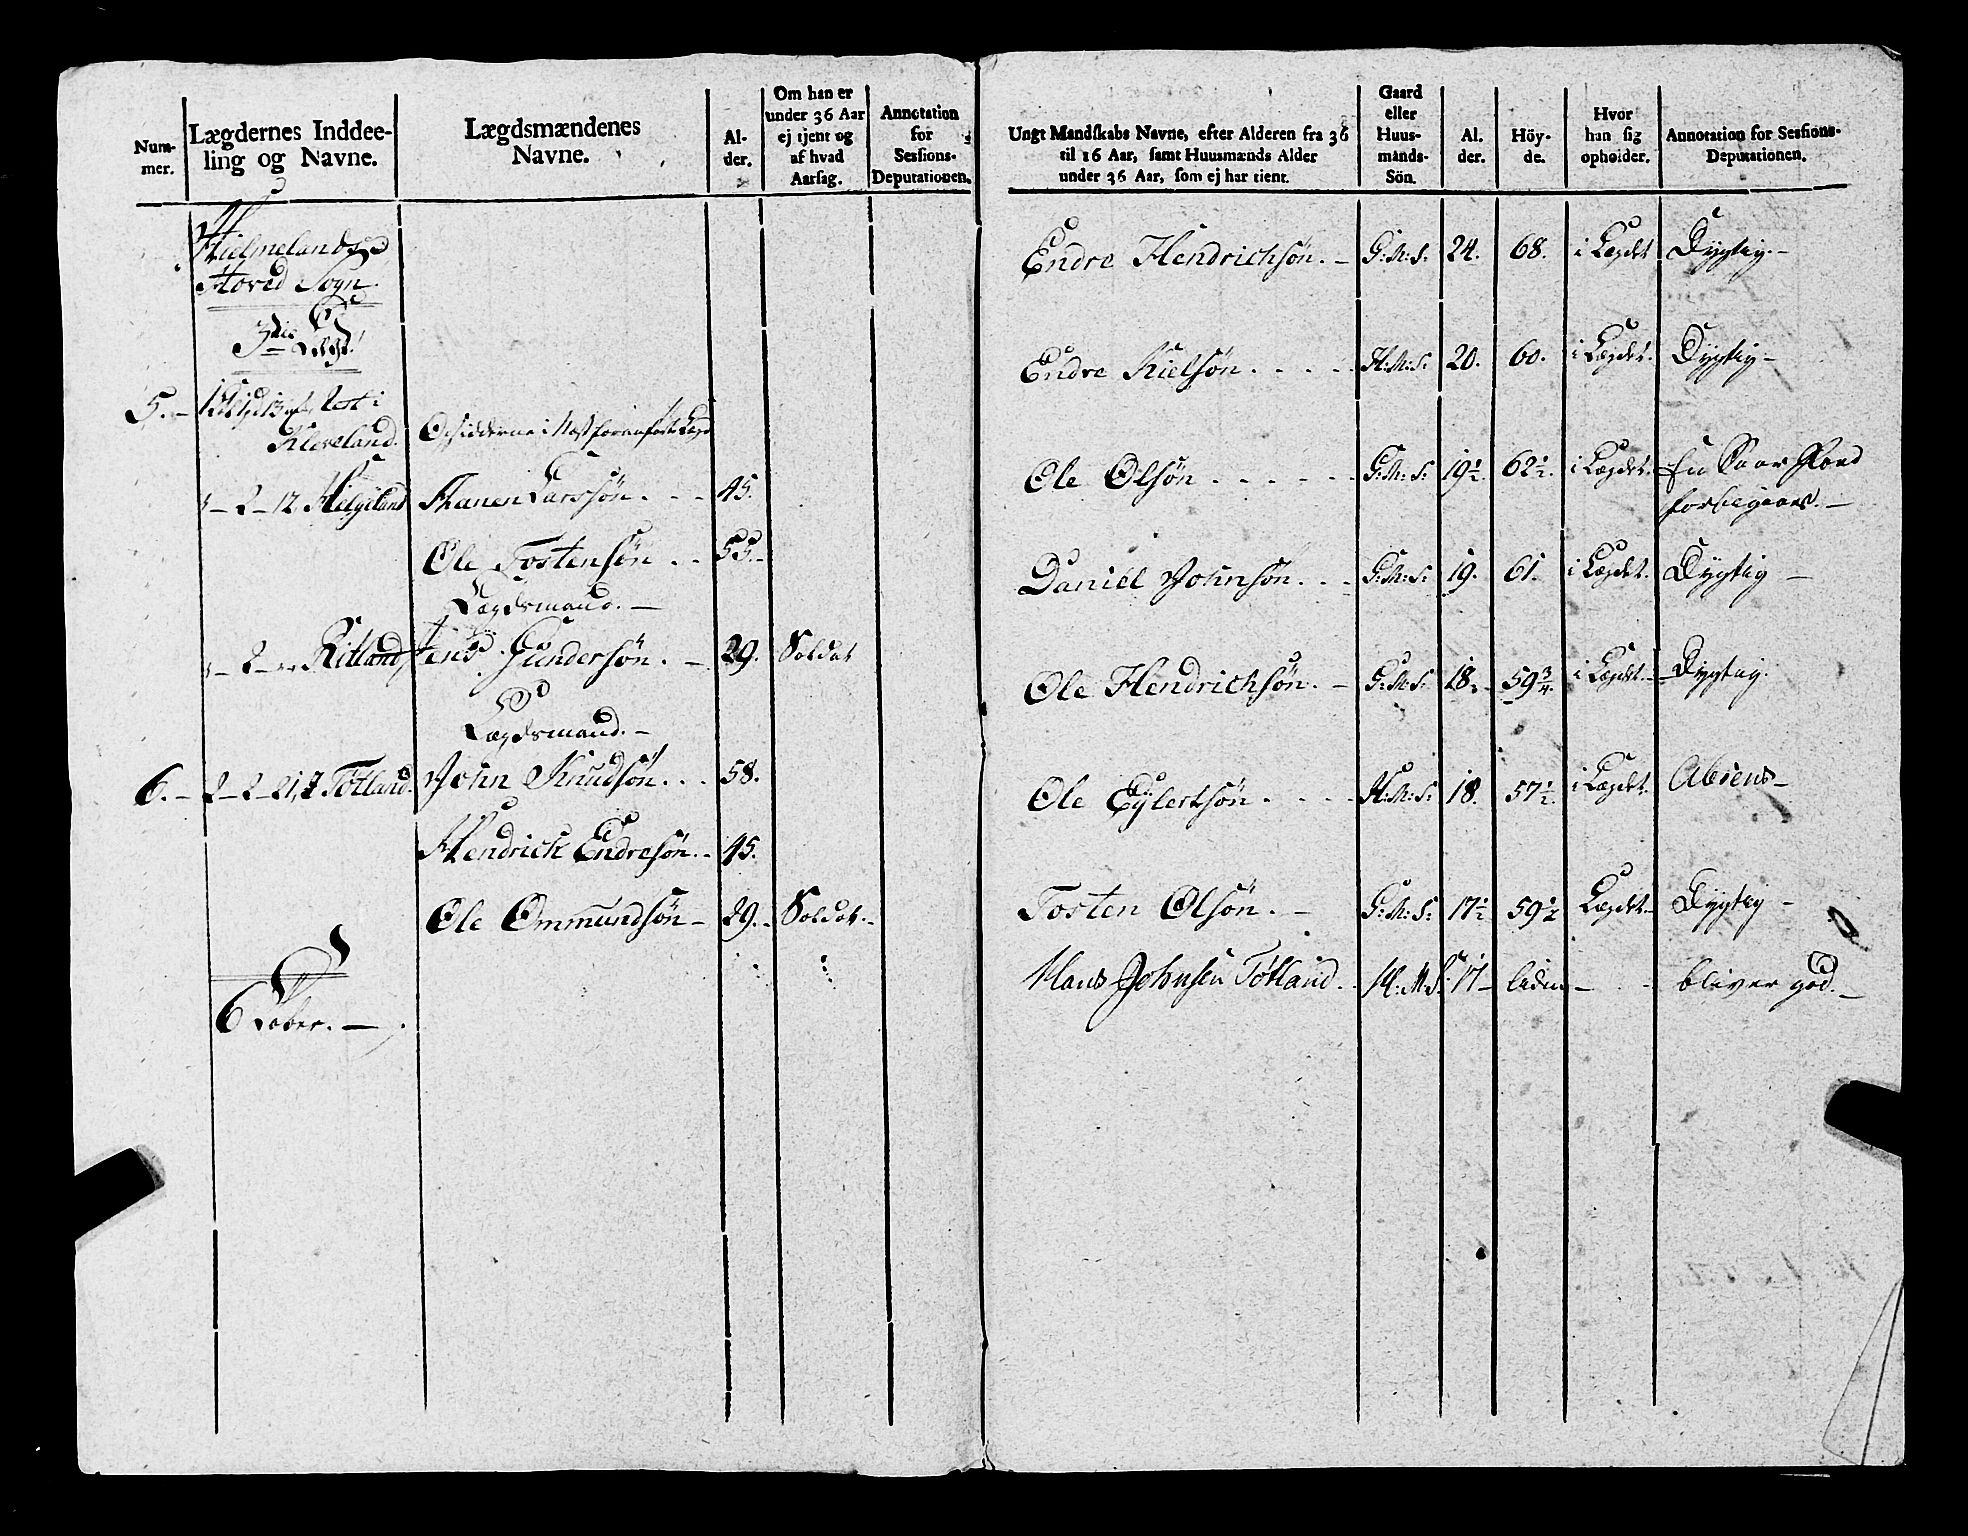 Num-
mer.
Lægdernes Inddee-
ling og Navne.
Lægdsmændenes
Navne.
Al-
der.
Om han er
under 36 Aar
ej tjent og
af hvad
Aarsag.
Annotation
for
Sessions-
Deputationen.
Hielmelands
Hoved Sogn.
3die Lægd.
5. Rest i
Kleveland. Opsidderne i Næst foranførte Lægd
2 - 12 Helgeland Thanen Larssön. 45.
Ole Tostensön 55.
Lægdsmand.
2 Ritland Jens Gundersön. 29. Soldat
Lægdsmand.
6. 2 - 2 - 21 1/2 Tötland. John Knudsön. 58.
Hendrich Endresön. 45.
Ole Ommundsön 29. Soldat.
6 Løber.
Ungt Mandskabs Navne, efter Alderen fra 36
til 16 Aar, samt Huusmænds Alder
under 36 Aar, som ej har tient.
Gaard
eller
Huus-
mands-
Sön.
Al.
der.
Höy-
de.
Hvor
han sig
opholder.
Annotation for Sessions-
Deputationen.
Endre Hendrichsön. G:M:S: 24. 68. i Lægdet Dygtig.
Endre Kielsön. H:M:S: 20. 60. i Lægdet. Dygtig
Ole Olsön G:M:S: 19 1/2. 62 1/2. i Lægdet. En Saar Haand
forbigaaes.
Daniel Johnsön. G:M:S: 19. 61. i Lægdet. Dygtig
Ole Hendrichsön. G:M:S: 18. 59 3/4. i Lægdet. Dygtig.
Ole Eylertsön. H:M:S: 18. 57 1/2. i Lægdet. Absens
Tosten Olsön. G:M:S: 17 1/2 59 1/2 Lægdet. Dygtig
Hans Johnsen Tötland. H:M:S: 17 liden bliver god.